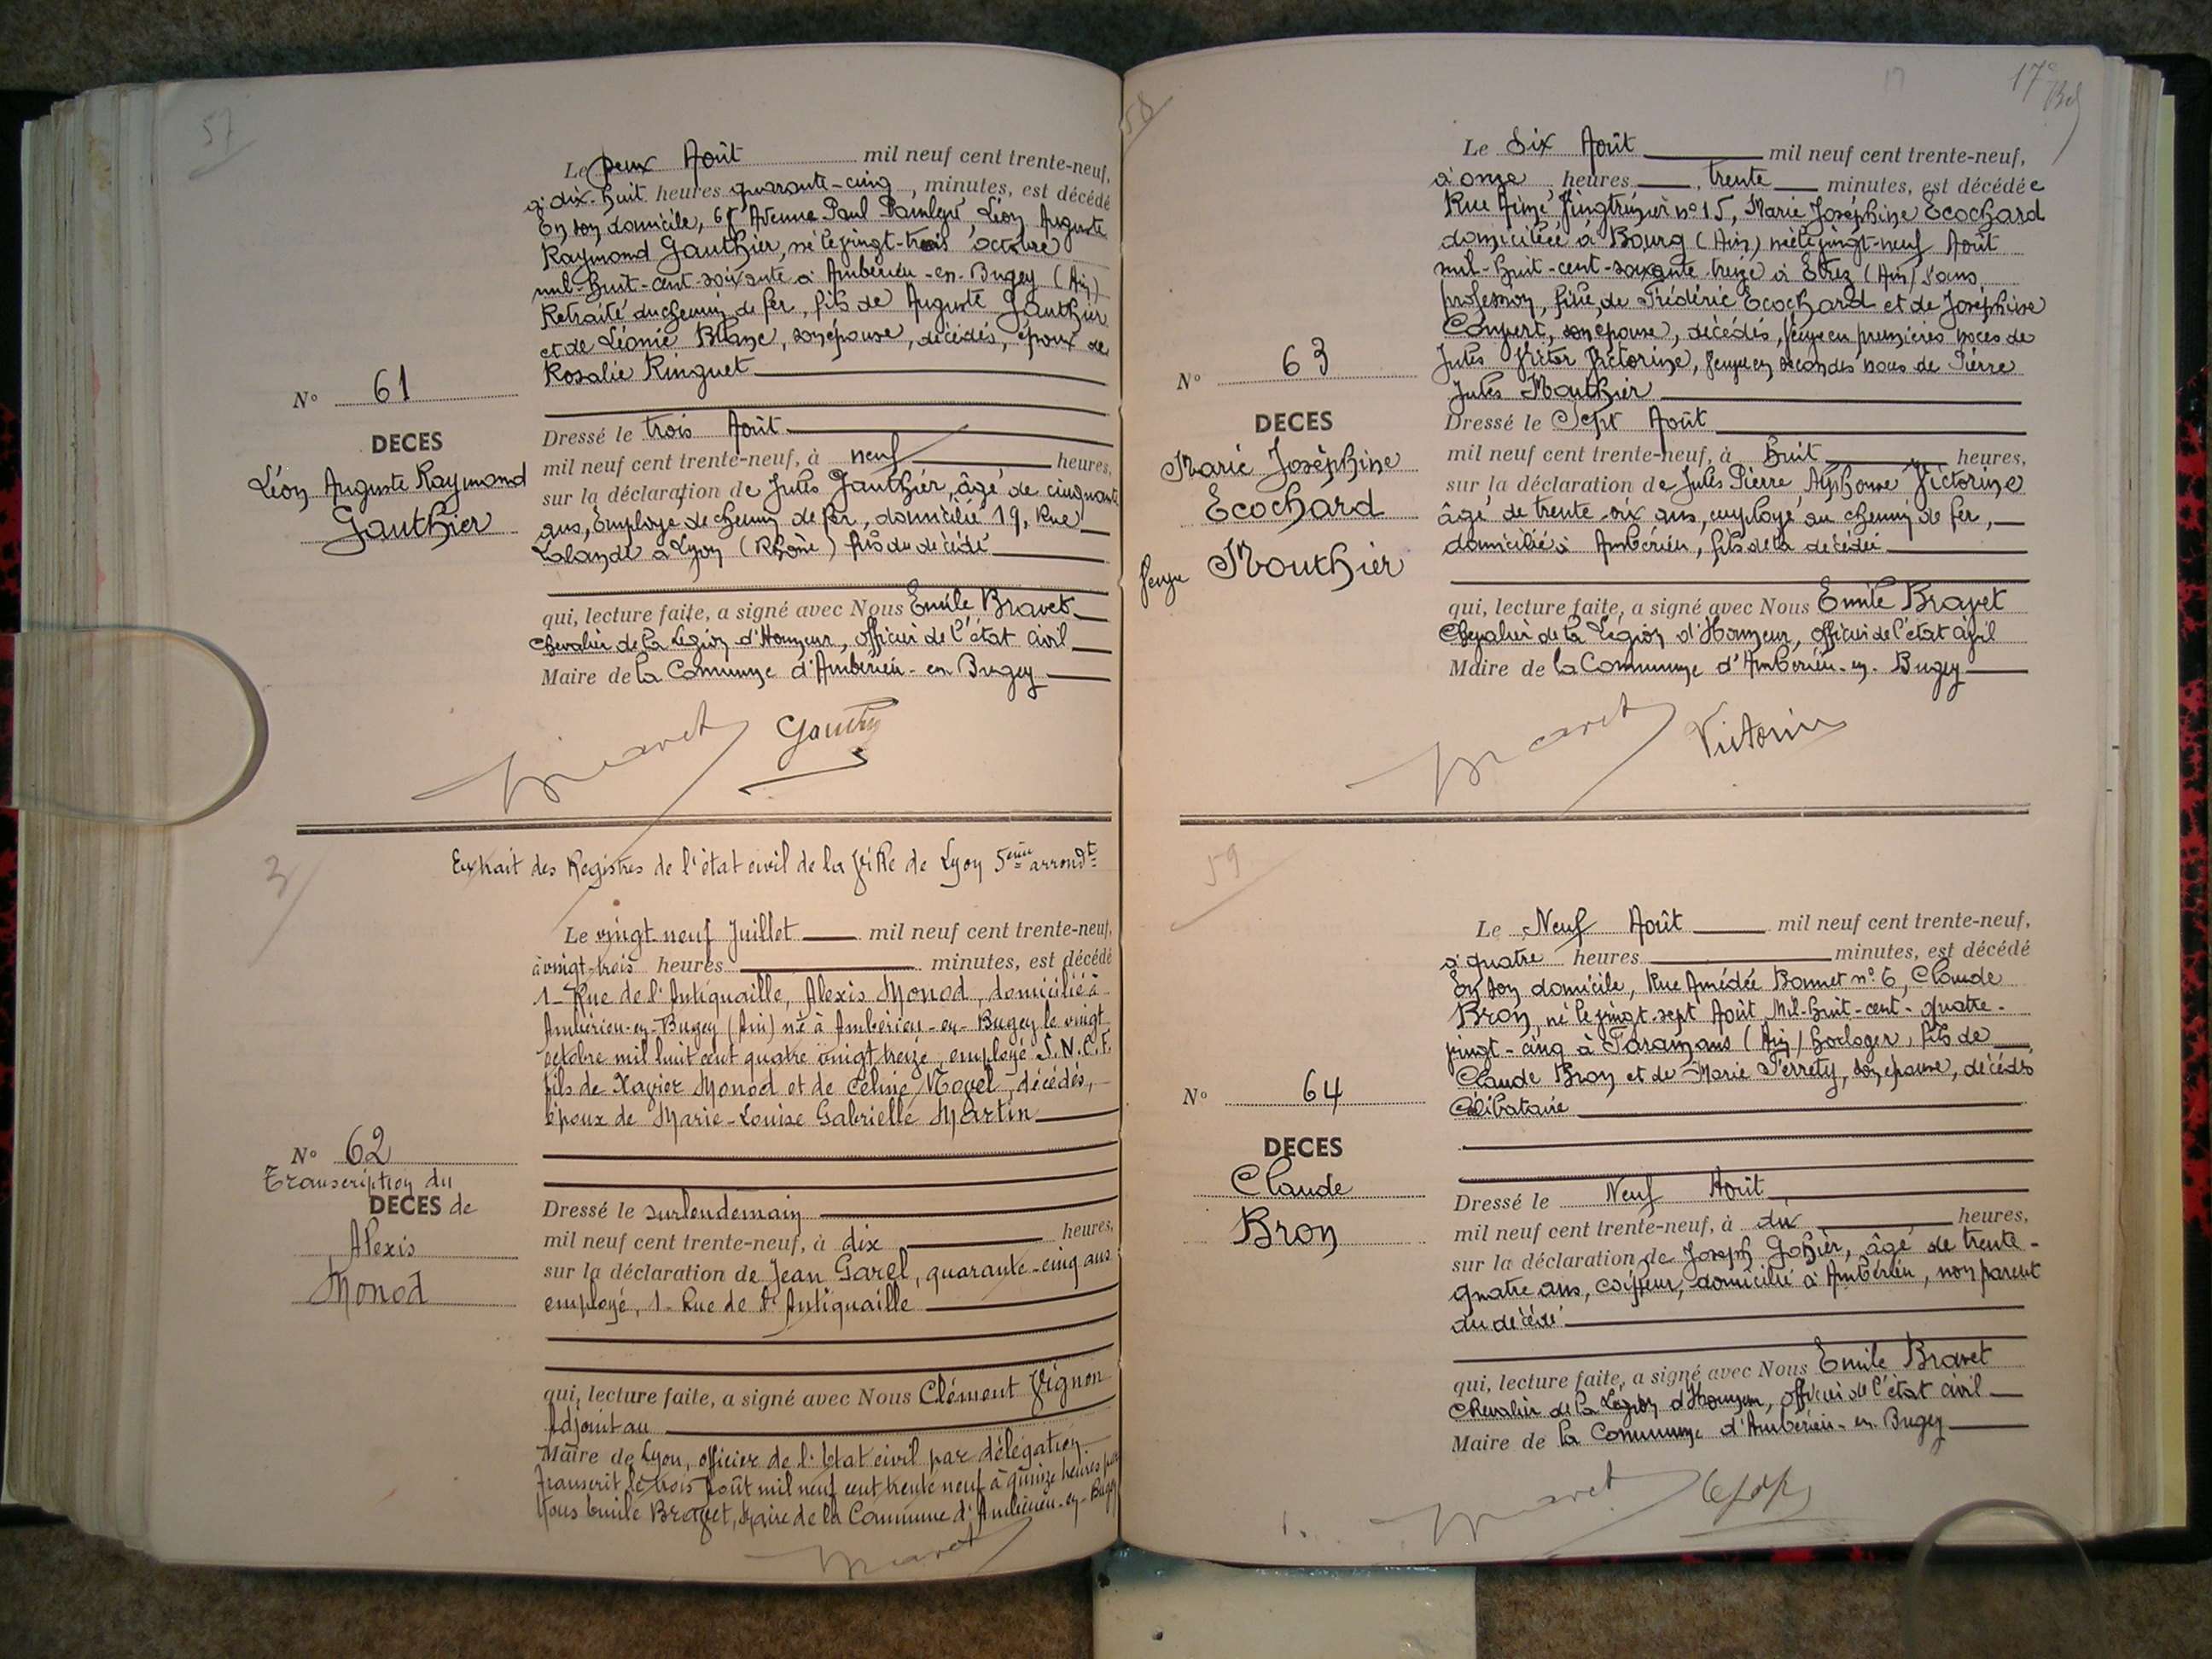 57
Le Deux Août mil neuf cent trente-neuf,
à dix-huit heures quarante-cinq, minutes, est décédé
En son domicile, 65 Avenue Paul Painlevé, Léon Auguste
Raymond Gauthier, né le vingt-trois octobre
mil-huit-cent-soixante à Ambérieu-en-Bugey (Ain)
Retraité du chemin de fer, fils de Auguste Gauthier
et de Léonie Blanc, son épouse, décédés, époux de
Rosalie Ringuet
N° 61
DECES
Léon Auguste Raymond
Gauthier
Dressé le trois Août
mil neuf cent trente-neuf, à neuf heures,
sur la déclaration de Jules Gauthier, âgé de cinquante
ans, Employé de chemin de fer, domicilié 19, Rue
Lalande à Lyon (Rhône) fils du décédé
qui, lecture faite, a signé avec Nous Emile Bravet
Chevalier de la Légion d'Honneur, officier de l'état civil
Maire de la Commune d'Ambérieu-en-Bugey
Bravet Gauthier
3
Extrait des Registres de l'état civil de la Ville de Lyon 5ème arrondt
Le vingt-neuf Juillet mil neuf cent trente-neuf,
à vingt-trois heures minutes, est décédé
1-Rue de l'Antiquaille, Alexis Monod, domicilié à
Ambérieu-en-Bugey (Ain) né à Ambérieu-en-Bugey le vingt
octobre mil huit cent quatre vingt treize, employé S.N.C.F.
fils de Xavier Monod et de Céline, décédés,
époux de Marie-Louise Gabrielle Martin
N° 62
Transcription du
DECES de
Alexis
Monod
Dressé le surlendemain
mil neuf cent trente-neuf, à dix heures,
sur la déclaration de Jean Garel, quarante-cinq ans
employé, 1-Rue de l'Antiquaille
qui, lecture faite, a signé avec Nous Clément Vignon
Adjoint au
Maire de Lyon, officier de l'Etat civil par délégation
Transcrit le trois Août mil neuf cent trente neuf à quinze heures par
Nous Emile Bravet, Maire de la Commune d'Ambérieu-en-Bugey
Bravet
58
17e
Le Six Août mil neuf cent trente-neuf,
à onze heures, trente minutes, est décédée
Rue Aimé Vingtrinier n° 15, Marie Joséphine Ecochard
domiciliée à Bourg (Ain) née le vingt-neuf Août
mil-huit-cent-soixante treize à Etrez (Ain) sans
profession, fille de Frédéric Ecochard et de Joséphine
Convert, son épouse, décédés, Veuve en premières noces de
Jules Victor Victorine, Veuve en secondes noces de Pierre
Jules Mouthier
N° 63
DECES
Marie Joséphine
Ecochard
Veuve Mouthier
Dressé le Sept Août
mil neuf cent trente-neuf, à huit heures,
sur la déclaration de Jules Pierre Alphonse Victorine
âgé de trente-six ans, employé au chemin de fer,
domicilié à Ambérieu, fils de la décédée
qui, lecture faite, a signé avec Nous Emile Bravet
Chevalier de la Légion d'Honneur, officier de l'état civil
Maire de la Commune d'Ambérieu-en-Bugey
Bravet Victorine
59
Le Neuf Août mil neuf cent trente-neuf,
à quatre heures minutes, est décédé
En son domicile, Rue Amédée Bonnet n° 6, Claude
Bron, né le vingt-sept Août Mil-huit-cent-quatre-
vingt-cinq à Faramans (Ain) horloger, fils de
Claude Bron et de Marie Perrety, son épouse, décédés
Célibataire
N° 64
DECES
Claude
Bron
Dressé le Neuf Août
mil neuf cent trente-neuf, à dix heures,
sur la déclaration de Joseph Gohier, âgé de trente-
quatre ans, coiffeur, domicilié à Ambérieu, non parent
du décédé
qui, lecture faite, a signé avec Nous Emile Bravet
Chevalier de la Légion d'Honneur, officier de l'état civil
Maire de la Commune d'Ambérieu-en-Bugey
Bravet